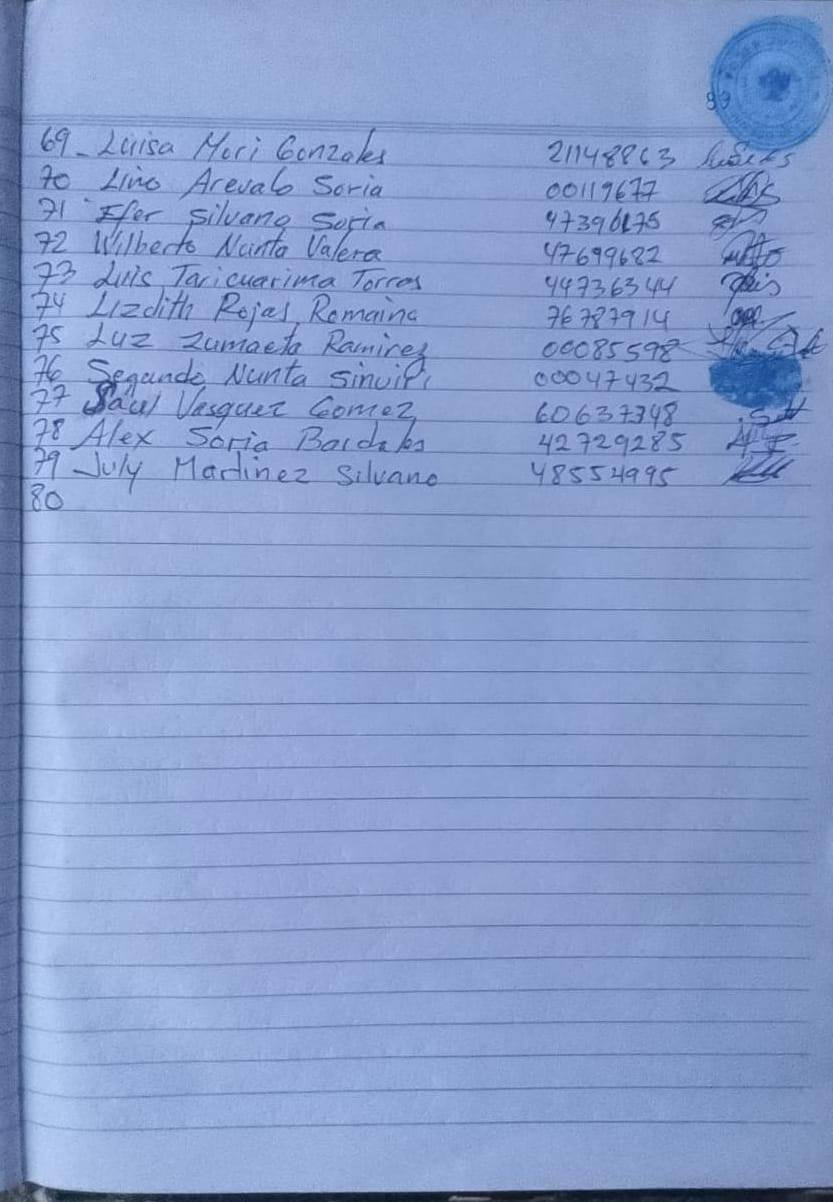 89
69- Luisa Mori Gonzales 21148863
70 Lino Arevalo Soria 00119677
71 Efer Silvano Soria 47396175
72 Wilberto Nunta Valera 47699682
73 Luis Taricuarima Torres 44736344
74 Lizdith Rojas Romaina 76787914
75 Luz Zumaeta Ramirez 00085598
76 Segundo Nunta Sinuiri 00047432
77 Saul Vasquez Gomez 60637348
78 Alex Soria Bardales 42729285
79 July Martinez Silvano 48554995
80